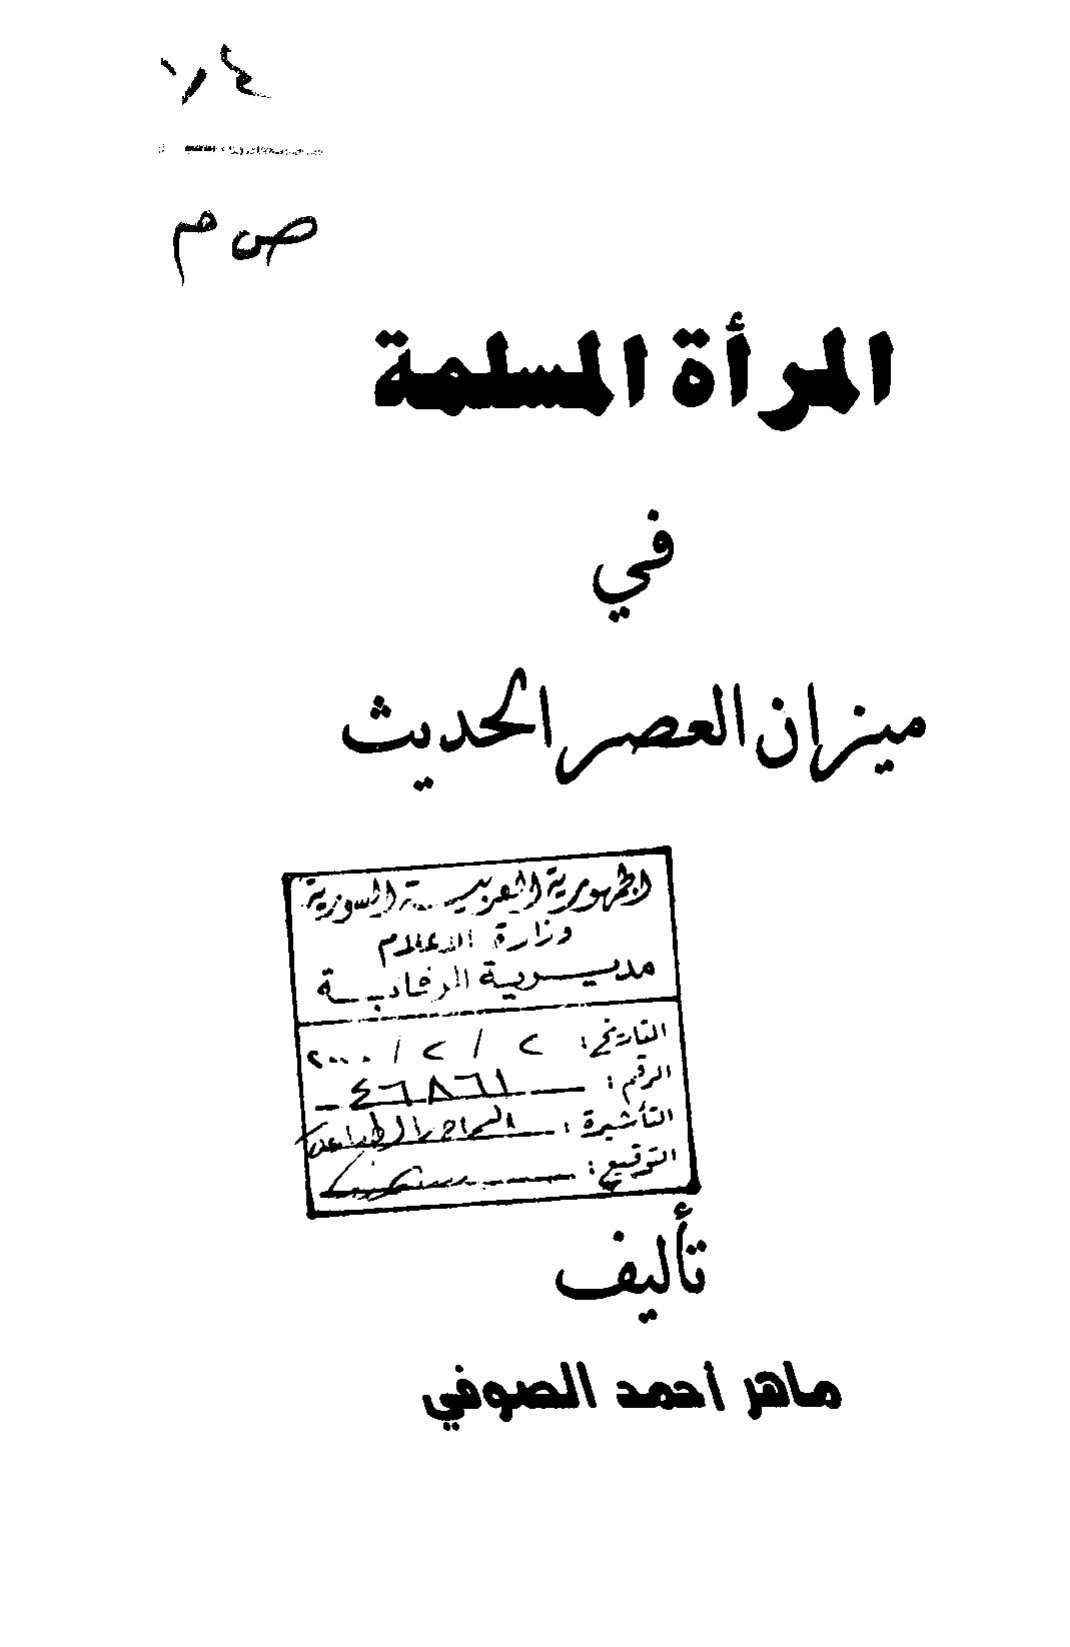 ص م
المرأة المسلمة
في
ميزان العصر الحديث
الجمهورية العربية السورية
وزارة الاعلام
مديرية الرقابة
التاريخ: ٢ / ٢ / ٢٠٠٠
الرقم: ٤٦٨٦١
التأشيرة:
التوقيع:
تأليف
ماهر أحمد الصوفي